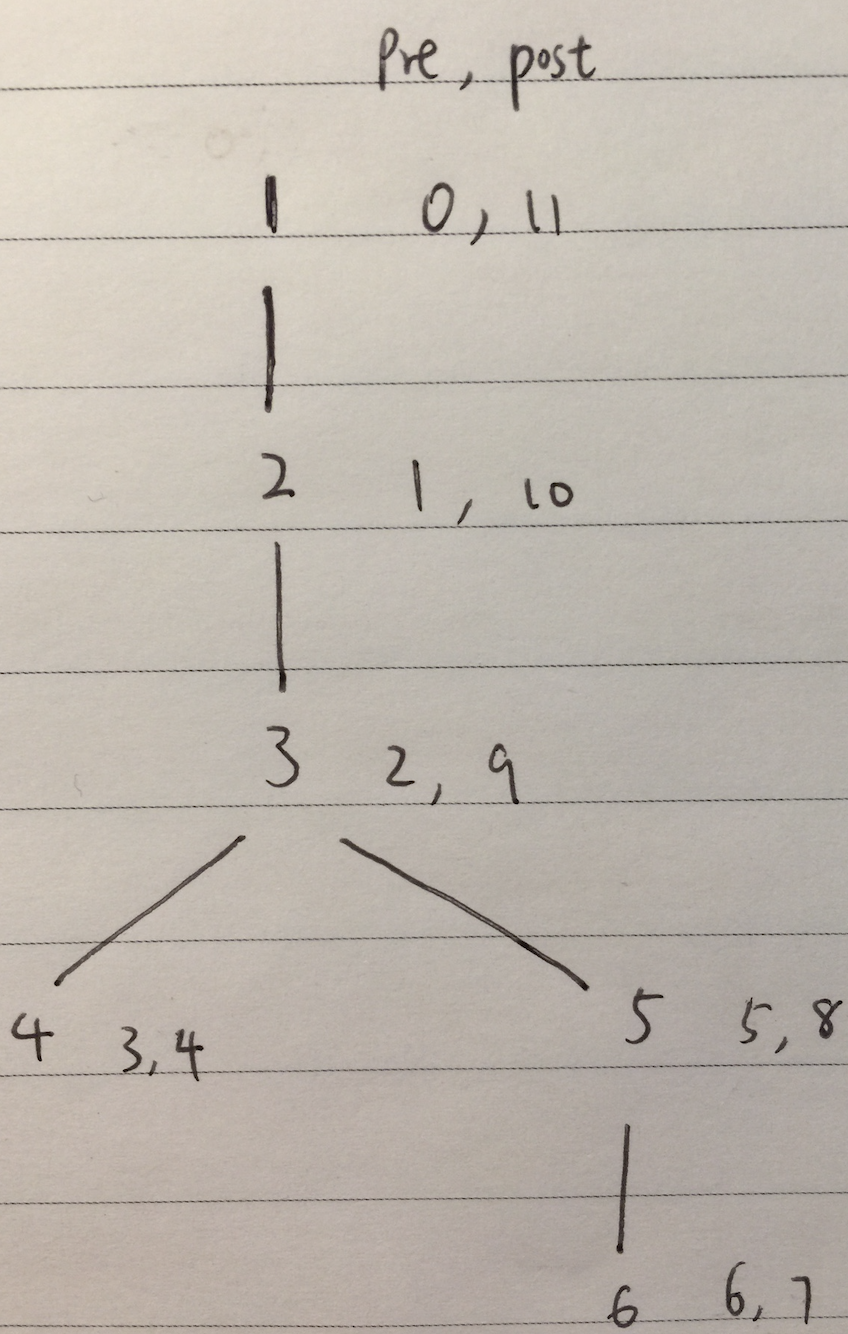 Pre, post
1 0, 11
2 1, 10
3 2, 9
4 3,4 5 5,8
6 6,7